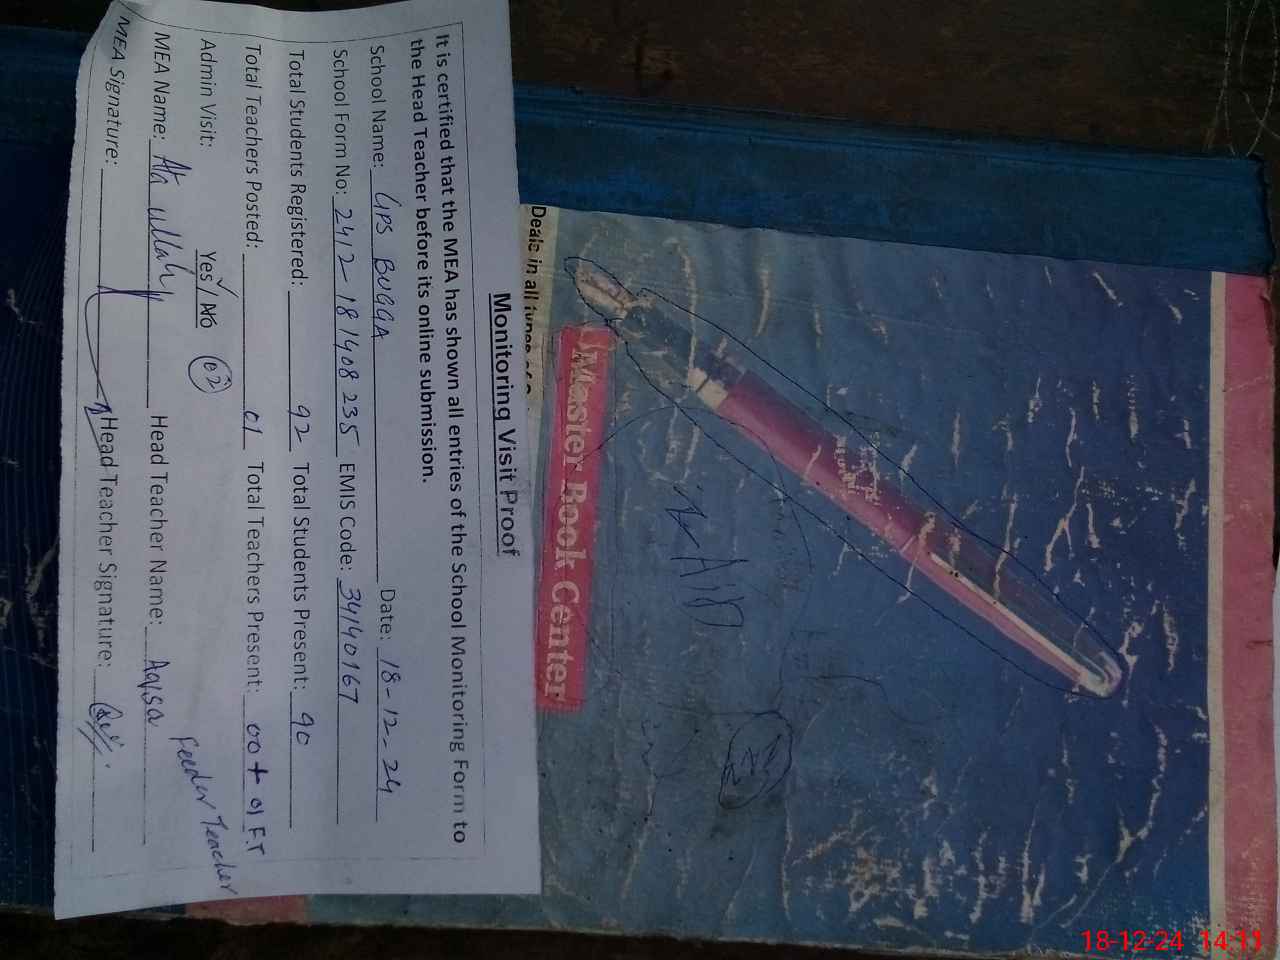 Monitoring Visit Proof
It is certified that the MEA has shown all entries of the School Monitoring Form to
the Head Teacher before its online submission.
School Name: GPS BUGGA Date: 18-12-24
School Form No: 2412-181408235 EMIS Code: 34140167
Total Students Registered: 92 Total Students Present: 90
Total Teachers Posted: 01 Total Teachers Present: 00 + 01 F.T
Admin Visit: Yes / No 02 Feeder Teacher
MEA Name: Ata ullah Head Teacher Name: Aqsa
MEA Signature: Head Teacher Signature:
Deals in all types of
Master Book Center
18-12-24 14:11